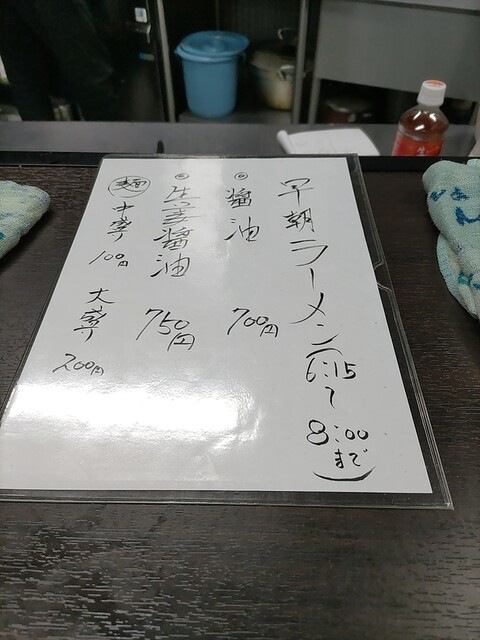 早朝ラーメン(6:15〜8:00まで)
◎醤油 700円
◎生姜醤油 750円
麺 中盛 100円
大盛 200円